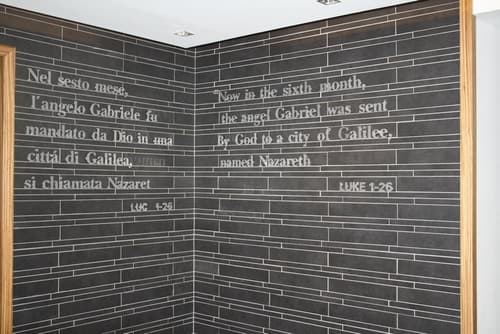 Nel sesto mese,
l'angelo Gabriele fu
mandato da Dio in una
città di Galilea,
si chiamata Nazaret
LUC 1-26
"Now in the sixth month,
the angel Gabriel was sent
By God to a city of Galilee,
named Nazareth
LUKE 1-26